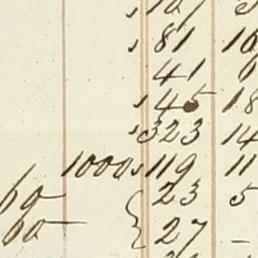 81
41
45 18
323 14
1000 119 11
60 23 5
60 27 -